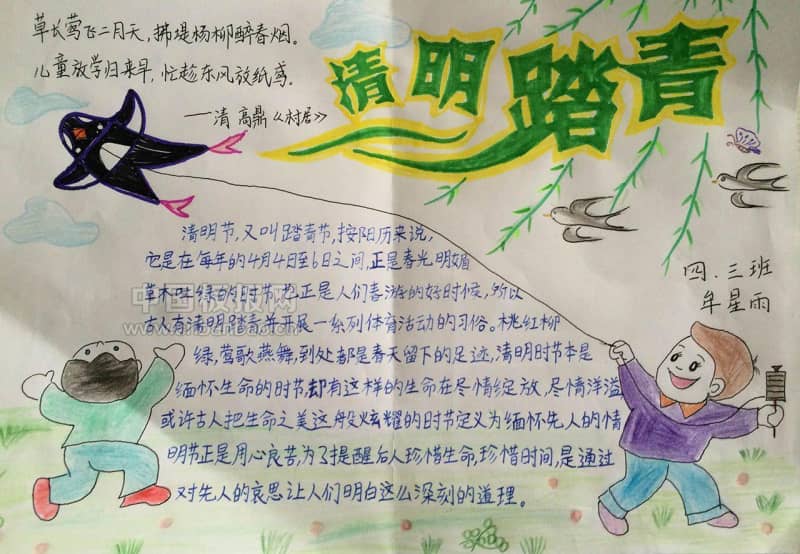 草长莺飞二月天，拂堤杨柳醉春烟。
儿童放学归来早，忙趁东风放纸鸢。
——清 高鼎《村居》
清明踏青
清明节，又叫踏青节，按阳历来说，
它是在每年的4月4日至6日之间，正是春光明媚
草木吐绿的时节，也正是人们春游的好时候，所以
古人有清明踏青并开展一系列体育活动的习俗。桃红柳
绿，莺歌燕舞，到处都是春天留下的足迹，清明时节本是
缅怀生命的时节，却有这样的生命在尽情绽放，尽情洋溢
或许古人把生命之美这般炫耀的时节定义为缅怀先人的情
明节正是用心良苦，为了提醒后人珍惜生命，珍惜时间，是通过
对先人的哀思让人们明白这么深刻的道理。
四.三班
牟星雨